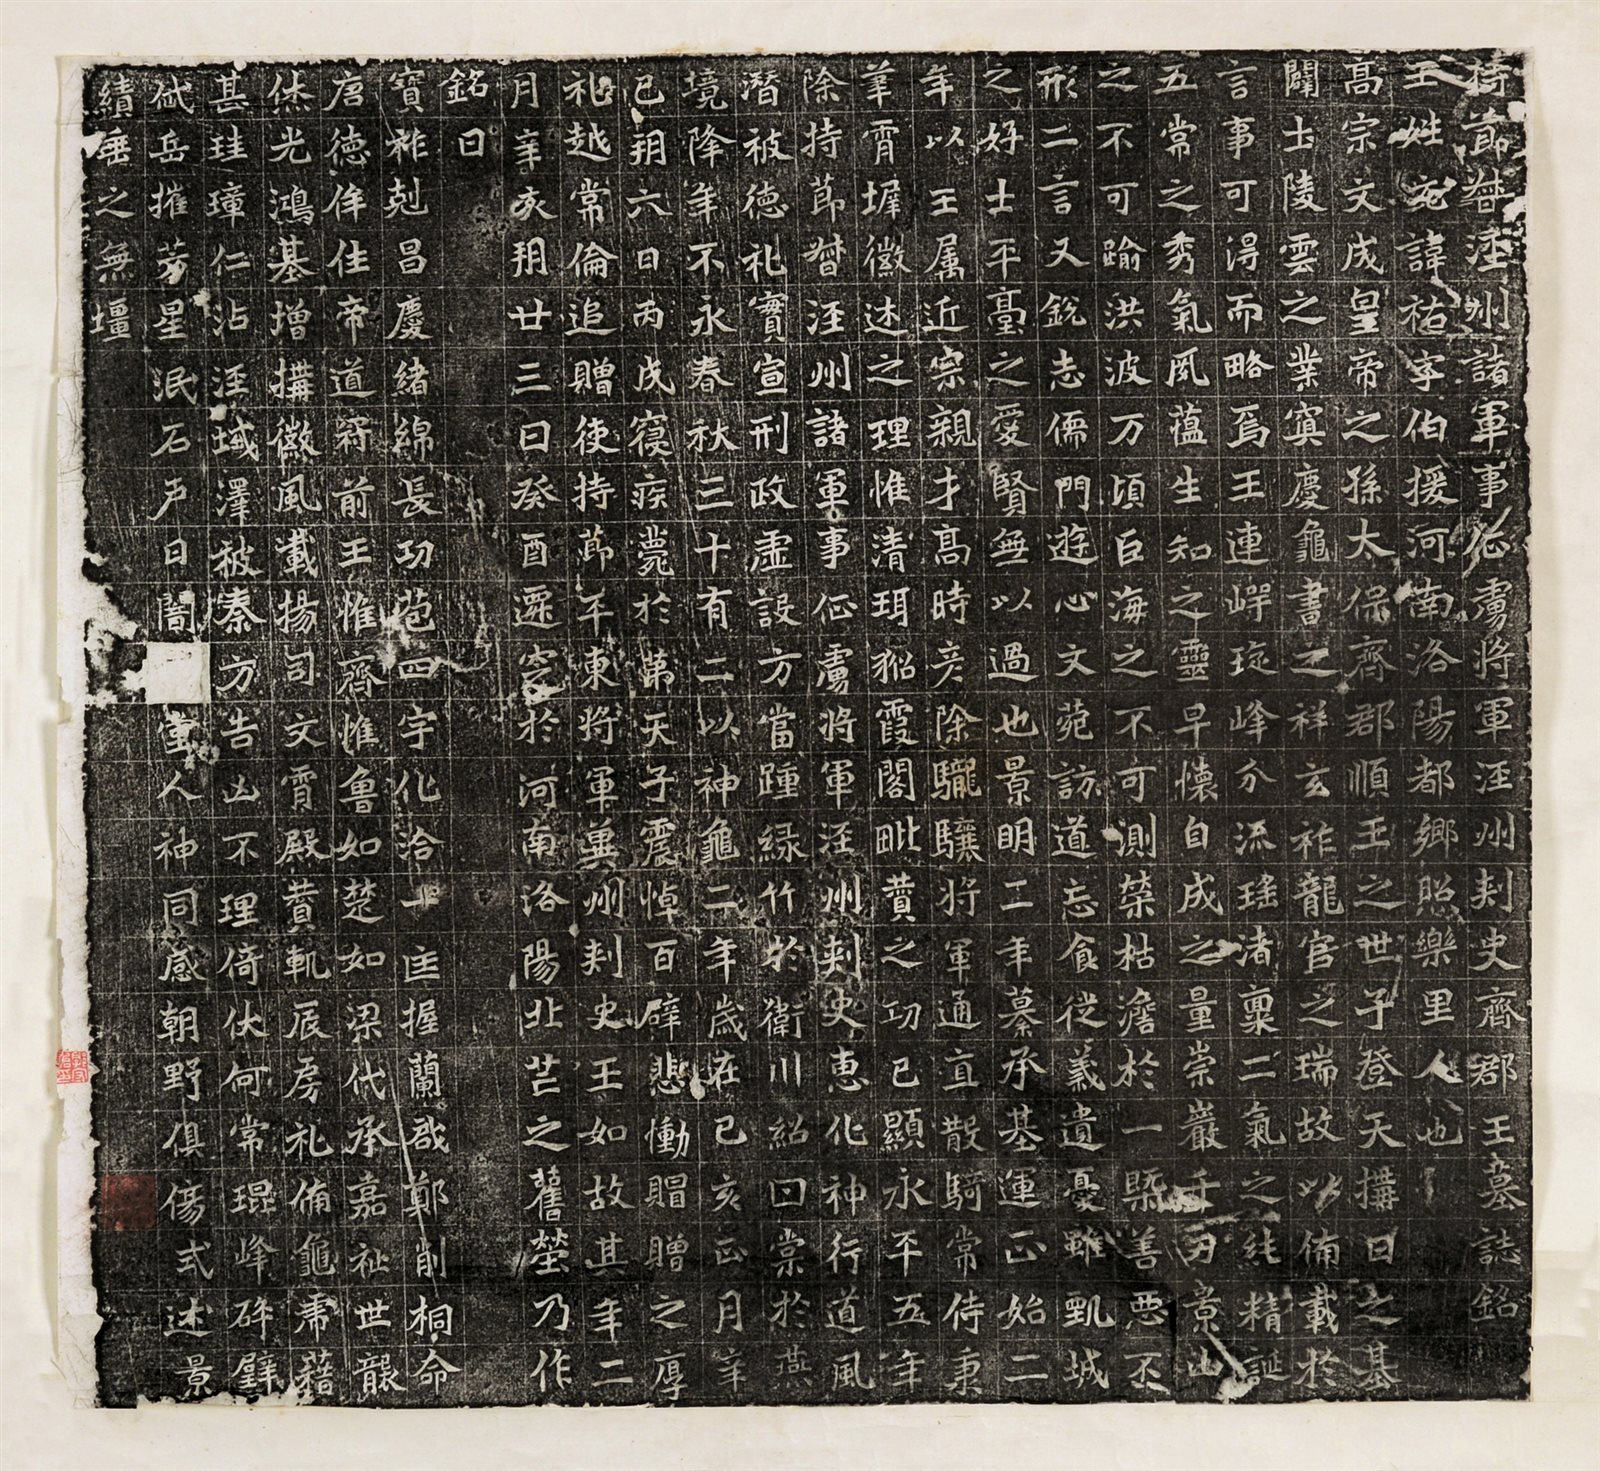 持節督涇州諸軍事征虜將軍涇州刾史齊郡王墓誌銘
王姓元諱祐字伯援河南洛陽都鄉照樂里人也
高宗文成皇帝之孫太保齊郡順王之世子登天搆日之基
闢土陵雲之業寘慶龜書之祥玄祚龍官之瑞故以備載於
言事可得而略焉王連崿琁峰分流瑤渚稟二氣之純精誕
五常之秀氣風蘊生知之靈早懷自成之量崇巖千刃景山
之不可踰洪波万頃巨海之不可測榮枯澹於一槩善惡丕
形二言又銳志儒門遊心文菀訪道忘食從義遺憂雖甄城
之好士平臺之愛賢無以過也景明二年纂承基運正始二
年以王属近宗親才高時彥除驪驤將軍通直散騎常侍秉
筆霄墀徽述之理惟清珥貂霞閣毗賛之功已顯永平五年
除持節督涇州諸軍事征虜將軍涇州刾史惠化神行道風
潛被德礼實宣刑政虛設方當踵緑竹於衛川紹甘棠於燕
境降年不永春秋三十有二以神龜二年歲在己亥正月辛
巳朔六日丙戌寑疾薨於第天子震悼百辟悲慟賵贈之厚
礼越常倫追贈使持節平東將軍兾州刾史王如故其年二
月辛亥朔廿三日癸酉遷窆於河南洛陽北芒之舊塋乃作
銘曰
寶祚剋昌慶緒綿長功苞四宇化洽一匡握蘭啟鄭削桐命
唐德侔往帝道冠前王惟齊惟魯如楚如梁代承嘉祉世襲
休光鴻基增搆徽風載揚司文霄殿賛軌辰房礼備龜席藉
甚珪璋仁沾涇域澤被秦方告凶不理倚伏何常琨峰碎璧
岱岳摧芳星泯石戶日闇堂人神同感朝野俱傷式述景
績垂之無壃